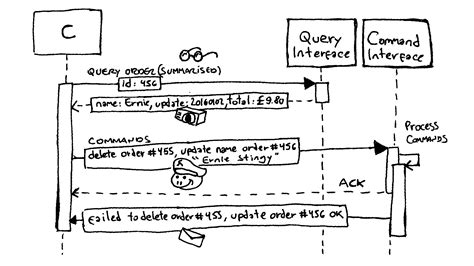 C
Query
Interface
Command
Interface
QUERY ORDER (SUMMARISED)
id: 456
name: Ernie, update: 20160102, total: £9.80
Process
COMMANDS
COMMANDS
delete order #455, update name order #456
"Ernie Stingy"
ACK
Failed to delete order #455, update order #456 OK